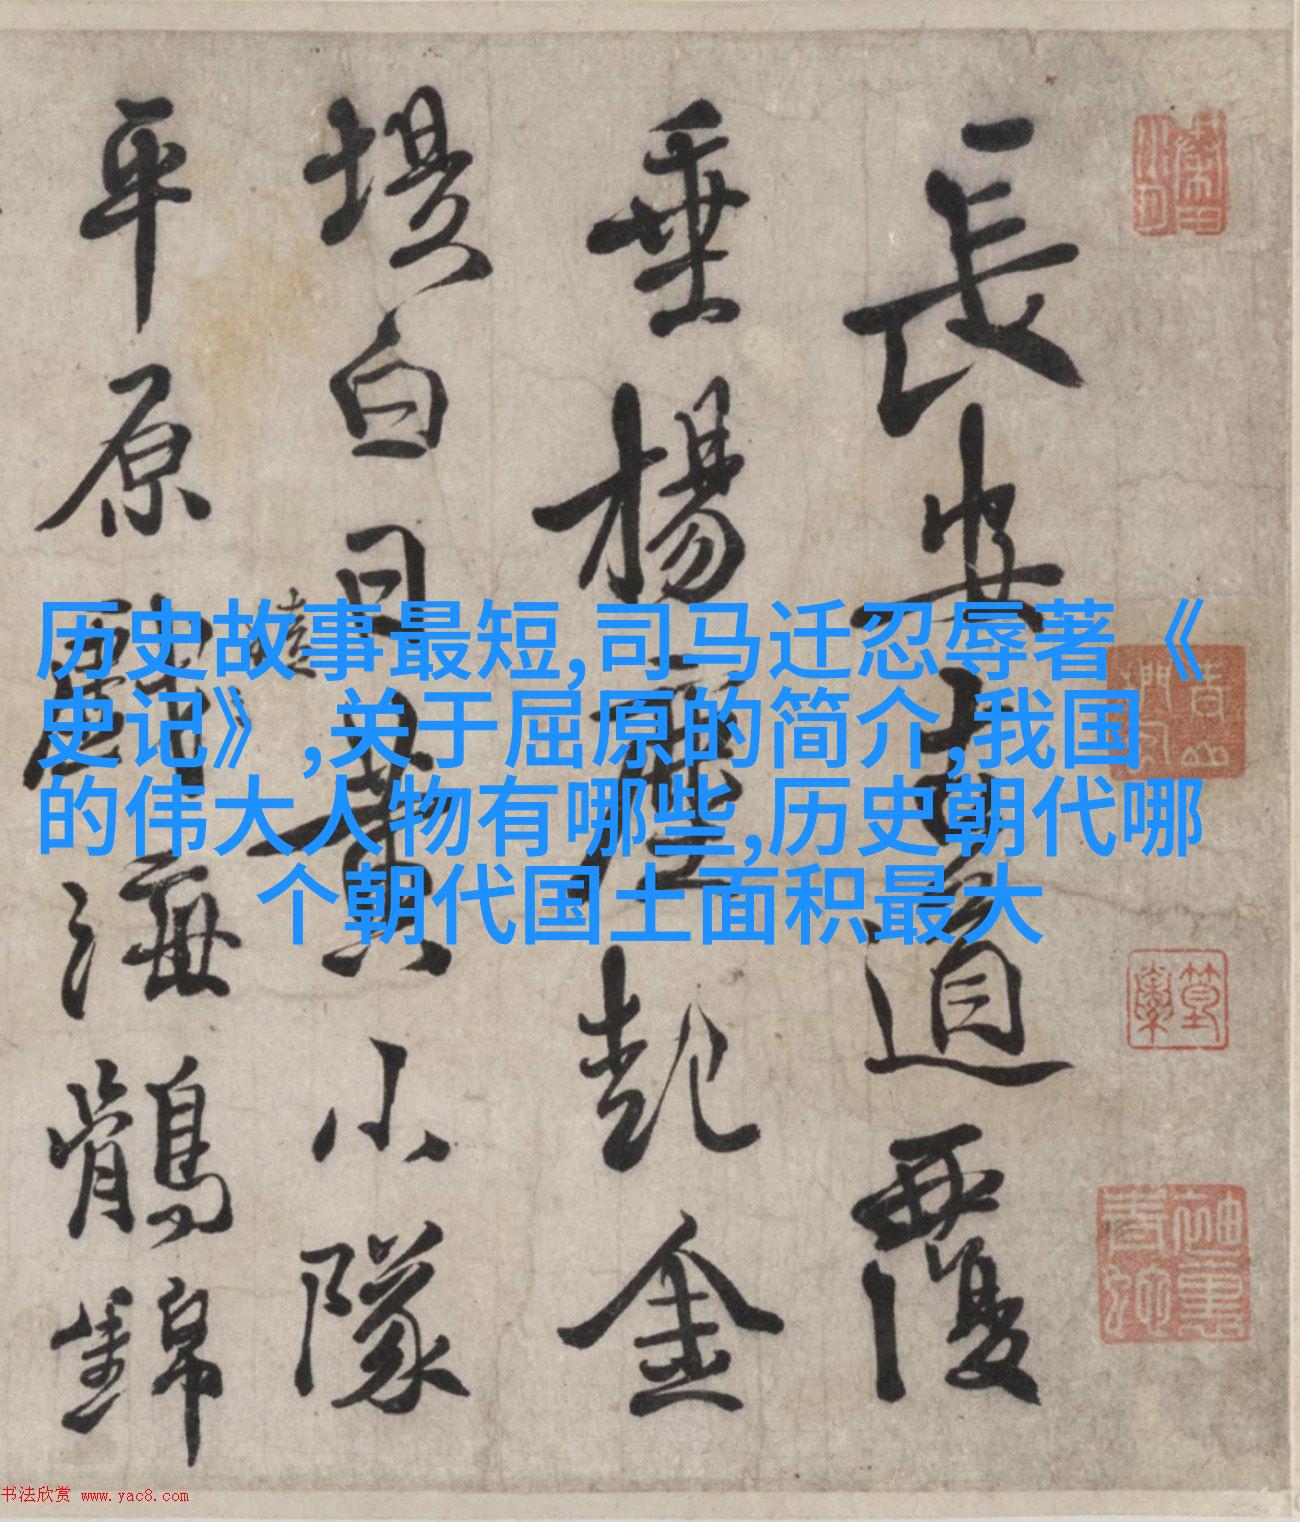 長安道覆
垂楊塵起金
堤白日黃小隊
平原海鶻錦
历史故事最短,司马迁忍辱著《
史记》,关于屈原的简介,我国
的伟大人物有哪些,历史朝代哪
个朝代国土面积最大
书法欣赏 www.yac8.com